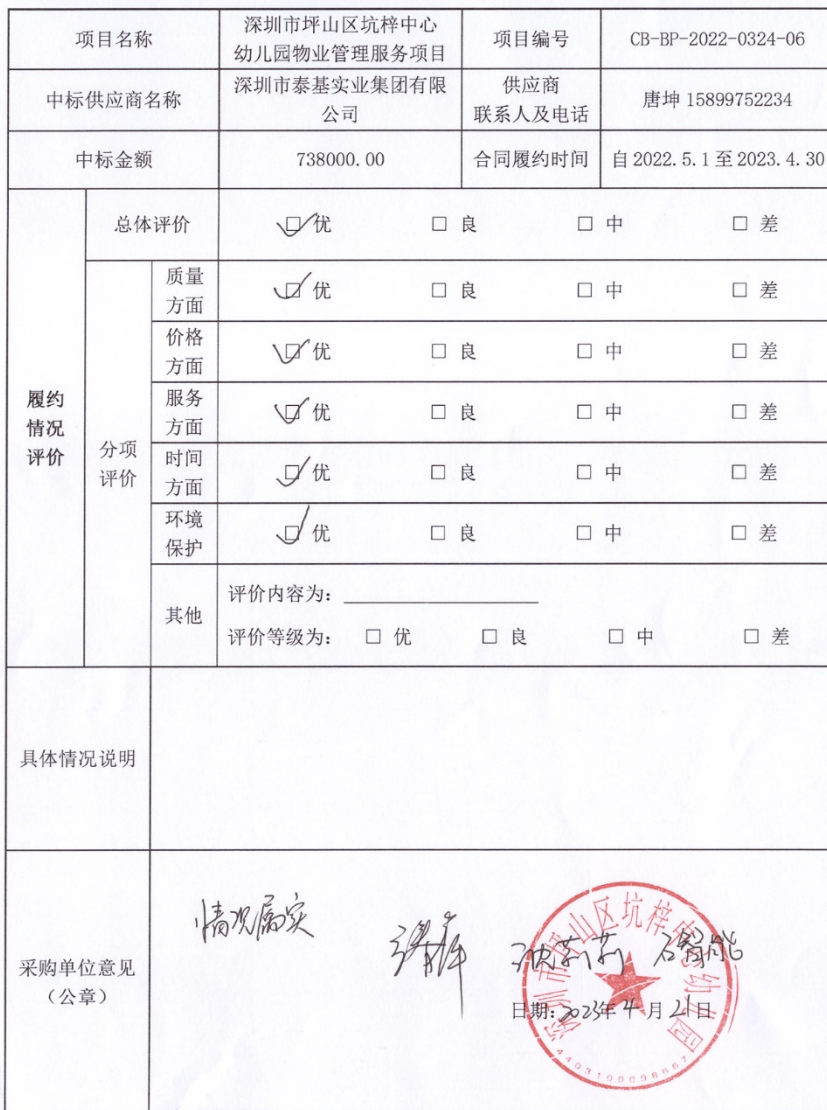 项目名称
深圳市坪山区坑梓中心
幼儿园物业管理服务项目
项目编号
CB-BP-2022-0324-06
中标供应商名称
深圳市泰基实业集团有限
公司
供应商
联系人及电话
唐坤 15899752234
中标金额
738000.00
合同履约时间
自 2022.5.1 至 2023.4.30
履约
情况
评价
总体评价
☑ 优 □ 良 □ 中 □ 差
分项
评价
质量
方面
☑ 优 □ 良 □ 中 □ 差
价格
方面
☑ 优 □ 良 □ 中 □ 差
服务
方面
☑ 优 □ 良 □ 中 □ 差
时间
方面
☑ 优 □ 良 □ 中 □ 差
环境
保护
☑ 优 □ 良 □ 中 □ 差
其他
评价内容为：
评价等级为： □ 优 □ 良 □ 中 □ 差
具体情况说明
采购单位意见
（公章）
情况属实
日期：2023年 4 月 21 日
深圳市坪山区坑梓中心幼儿园